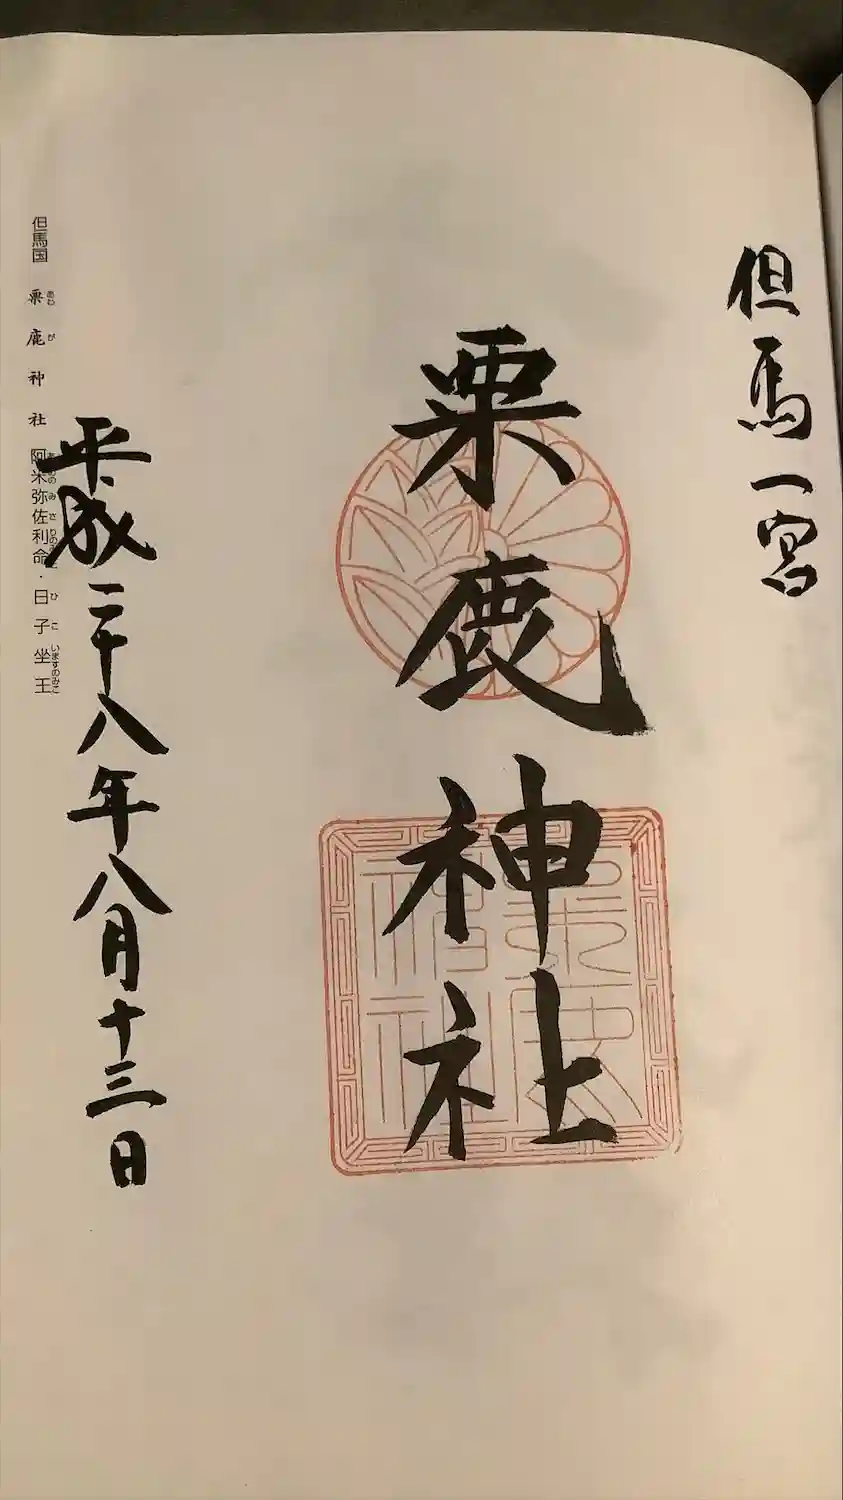 但馬一宮
粟鹿神社
平成二十八年八月十三日
但馬国 粟鹿神社 阿米弥佐利命・日子坐王